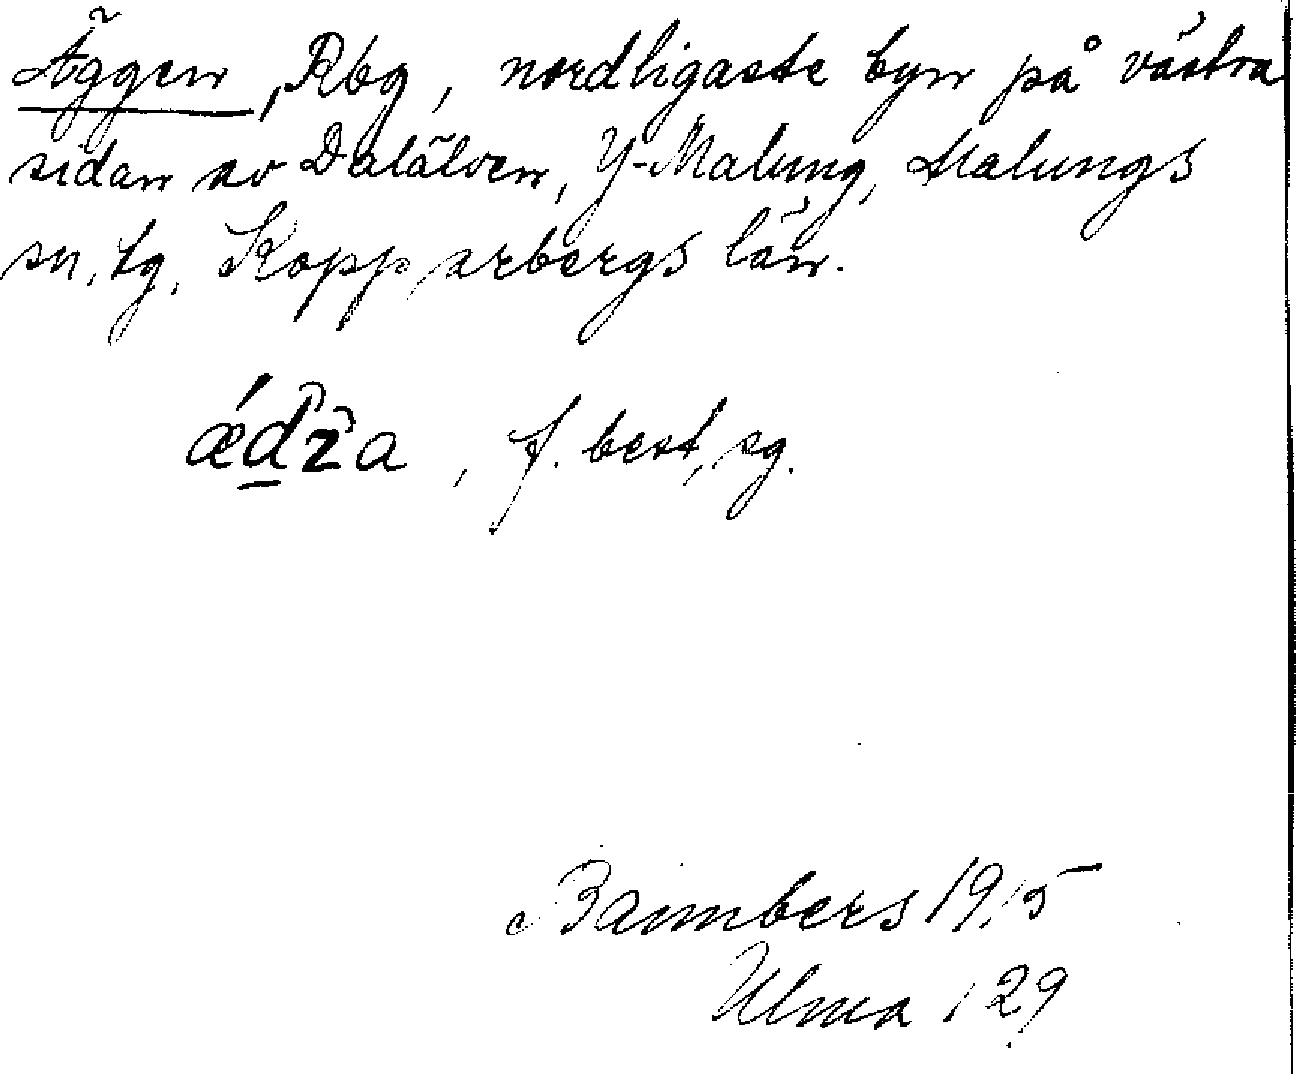 Äggen, Rbg, nordligaste byn på västra
sidan av Dalälven, Y-Malung, Malungs
sn, tg, Kopparbergs län.
ǽd̂z̑a, f. best, sg.
Bannbers 1915
Ulma 129